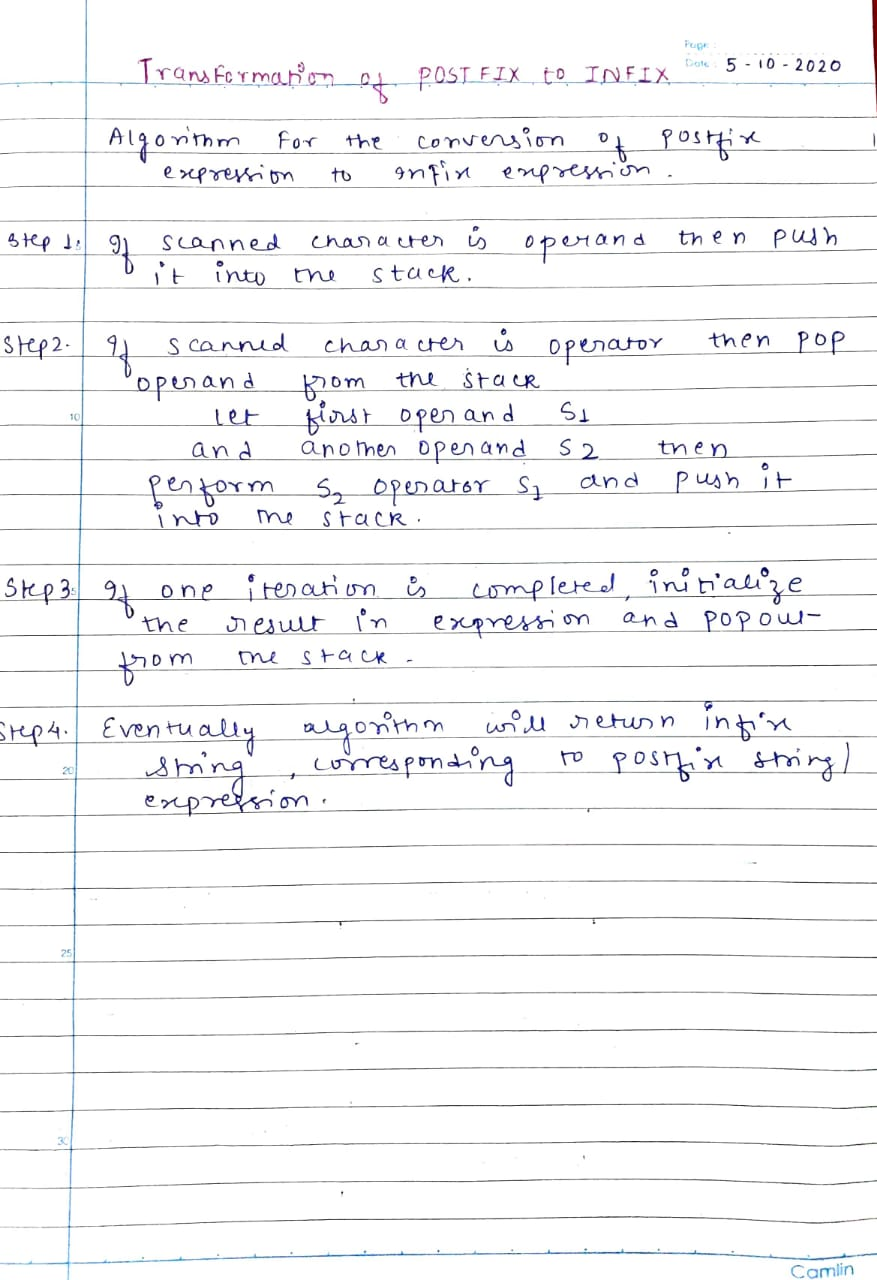 Page :
Date : 5-10-2020
Transformation of POSTFIX to INFIX
Algorithm For the conversion of postfix
expression to infix expression.
Step 1: If scanned character is operand then push
it into the stack.
Step2. If scanned character is operator then pop
operand from the stack
10 let first operand S1
and another operand S2 then
perform S2 operator S1 and push it
into the stack.
Step3: If one iteration is completed, initialize
the result in expression and pop out
from the stack.
Step4. Eventually algorithm will return infix
20 string, corresponding to postfix string/
expression.
25
30
Camlin